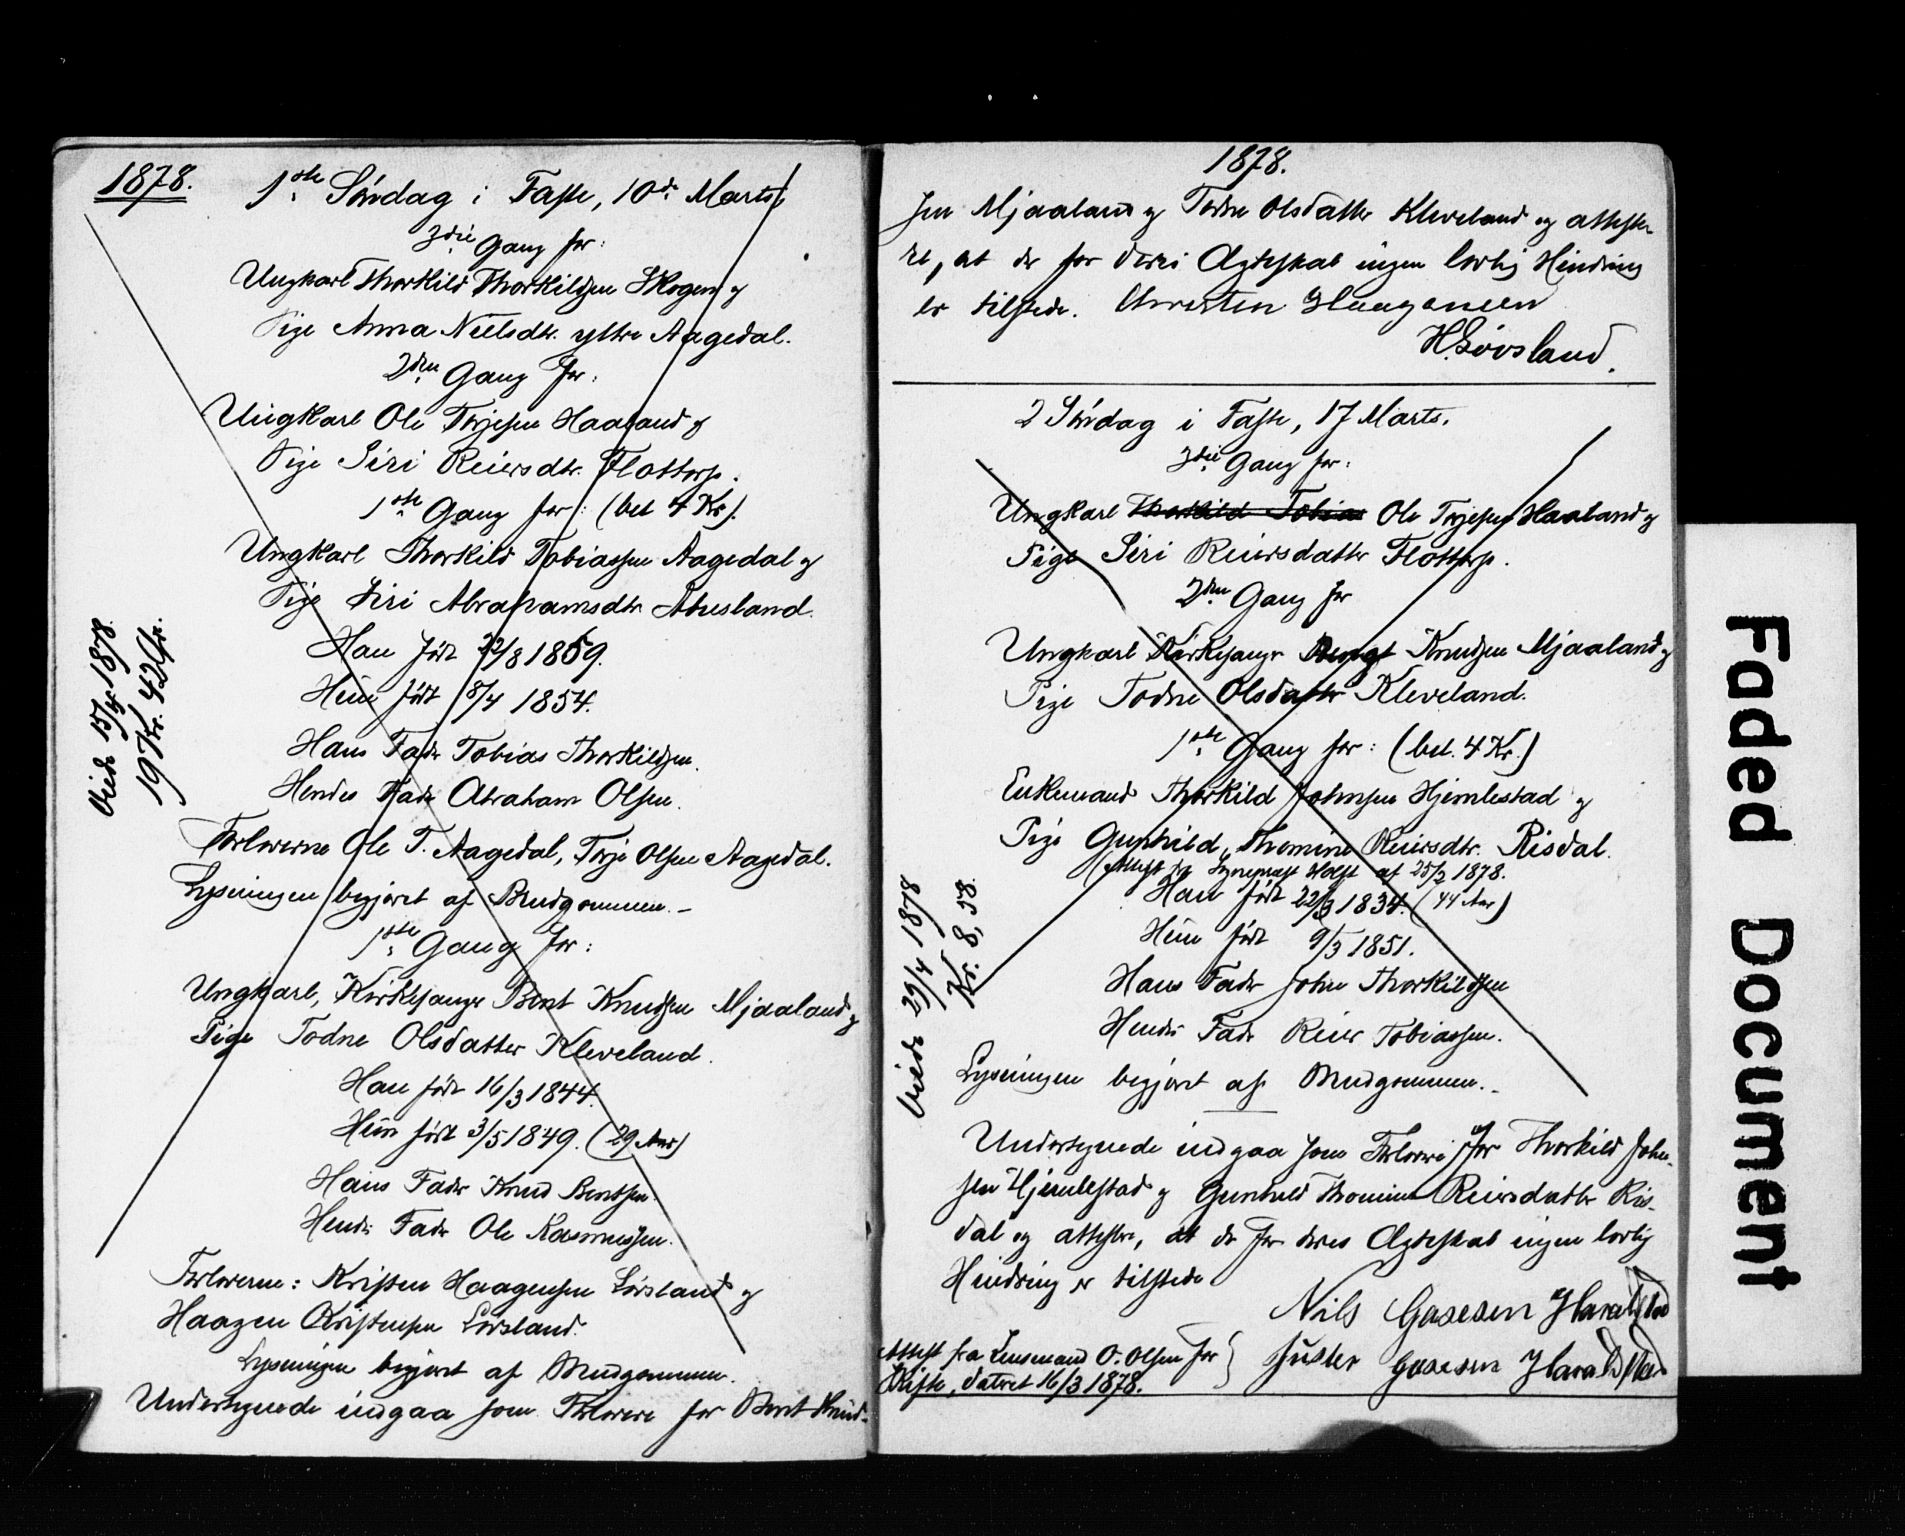 1878.
1ste Søndag i Faste, 10de Marts,
3die Gang for:
Ungkarl Thorkild Thorkildsen Skogen og
Pige Anna Neelsdtr. yttre Aagedal.
2den Gang for:
Ungkarl Ole Torjesen Haaland og
Pige Siri Reiersdtr. Flottorp.
1ste Gang for: (bet 4 Kr).
Ungkarl Thorkild Tobiassen Aagedal og
Pige Siri Abrahamsdtr. Abusland.
Han født 22/8 1859.
Hun født 8/4 1854.
Hans Fader Tobias Thorkildsen.
Hendes Fader Abraham Olsen.
Forloverne Ole T. Aagedal, Torje Olsen Aagedal.
Lysningen begjæret af Brudgommen.-
1ste Gang for:
Ungkarl, Kirkesanger Bent Knudsen Mjaaland og
Pige Todne Olsdatter Kleveland.
Han født 16/3 1844.
Hun født 3/5 1849. (29 Aar)
Hans Fader Knud Bentsen.
Hendes Fader Ole Rasmussen.
Forloverne: Kristen Haagensen Løvsland og
Haagen Kristensen Løvsland.
Lysningen begjæret af Brudgommen.
Undertegnede indgaa som Forlovere for Bent Knud-
Viede 15/4 1878.
19 Kr. 42 Ør.
1878.
sen Mjaaland og Todne Olsdatter Kleveland og atteste-
re, at der for deres Ægteskab ingen lovlig Hindring
er tilstede. Chresten Haagensen
H. Løvsland.
2 Søndag i Faste, 17 Marts.
3die Gang for:
Ungkarl Thorkild Tobias Ole Torjesen Haaland og
Pige Siri Reiersdatter Flottorp.
2den Gang for
Ungkarl Kirkesanger Bengt Knudsen Mjaaland og
Pige Todne Olsdatter Kleveland.
1ste Gang for: (bet. 4 Kr.)
Enkemand Thorkild Johnsen Hjemlestad og
Pige Gunhild Thomine Reiersdtr. Risdal.
(Attest fra Sognepræst Holst af 25/2 1878.
Han født 22/3 1834. (44 Aar)
Hun født 9/3 1851.
Hans Fader John Thorkildsen
Hendes Fader Reier Tobiassen.
Lysningen begjæret af Brudgommen.-
Undertegnede indgaa som Forlovere for Thorkild John-
sen Hjemlestad og Gunhild Thomine Reiersdatter Ris-
dal og attestere, at der for deres Ægteskab ingen lovlig
Hindring er tilstede
Nils Gasesen Haraldstad
Juster Gasesen Haraldstad
Attest fra Lensmand O. Olsen for
Skifte, dateret 16/3 1878.
Viede 29/4 1878
Kr. 8,58.
Faded Document